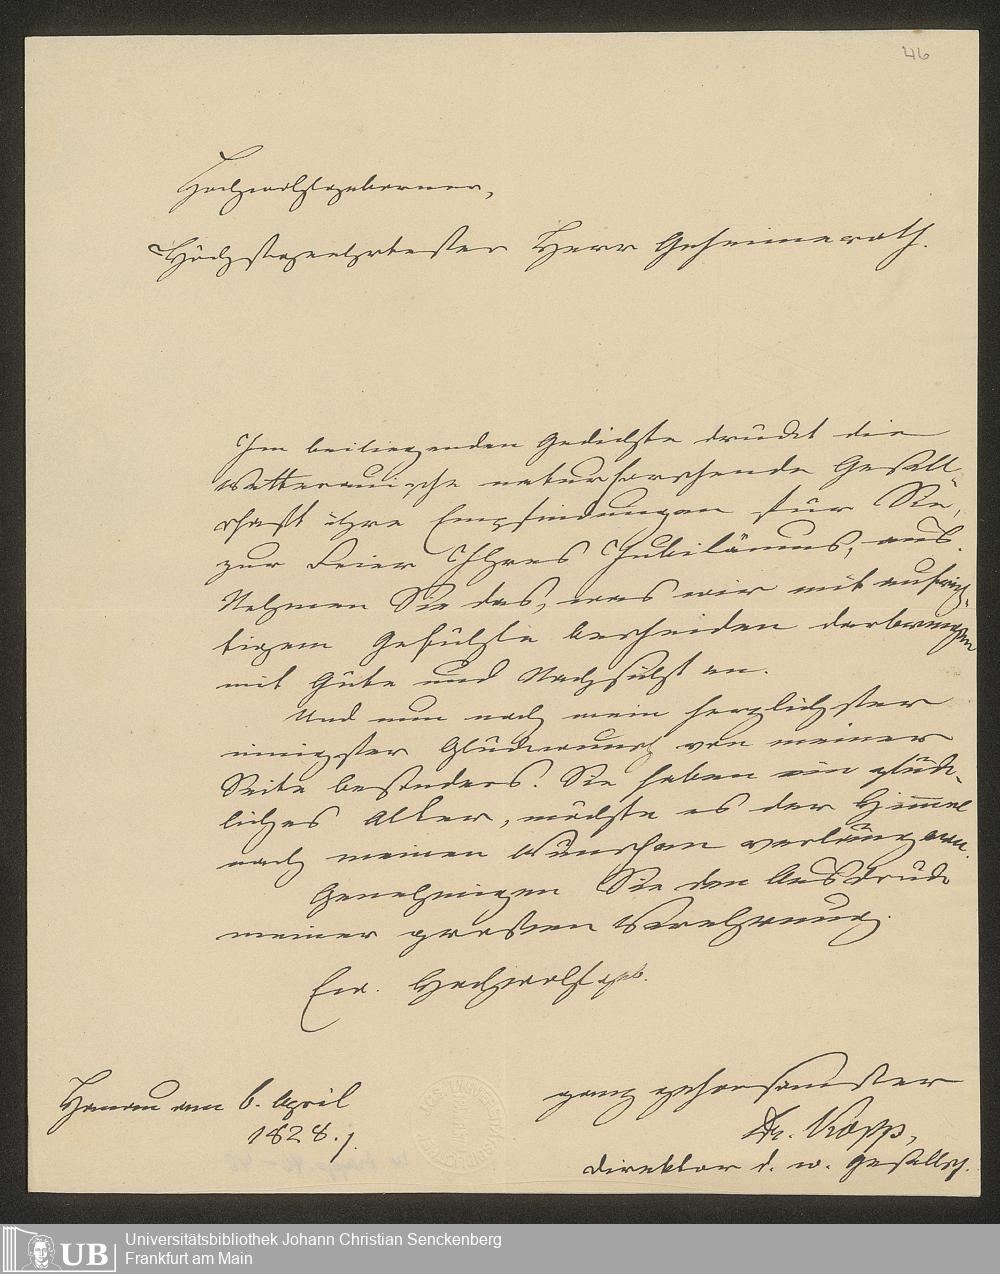 46
Hochwohlgeborner,
Höchstgeehrtester Herr Geheimerath.
Im beiliegenden Gedichte drückt die
Wetterauische naturforschende Gesell-
schaft ihre Empfindungen für Sie,
zur Feier Ihres Jubiläums, aus.
Nehmen Sie das, was wir mit aufrich-
tigem Gefühle bescheiden darbringen
mit Güte und Nachsicht an.
Und nun noch mein herzlichster
innigster Glückwunsch von meiner
Seite besonders. Sie haben ein glück-
liches Alter, möchte es der Himmel
nach meinen Wünschen verlängern.
Genehmigen Sie den Ausdruck
meiner grosen Verehrung.
Ew. Hochwohlgeb.
Hanau am 6. April
1828.
ganz gehorsamster
Dr. Kopp,
Direktor d. W. Gesellsch.
UB
Universitätsbibliothek Johann Christian Senckenberg
Frankfurt am Main